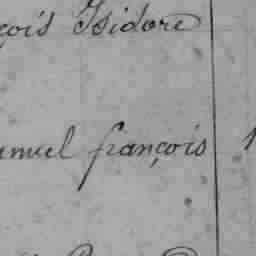 çois Isidore
amuel françois 1